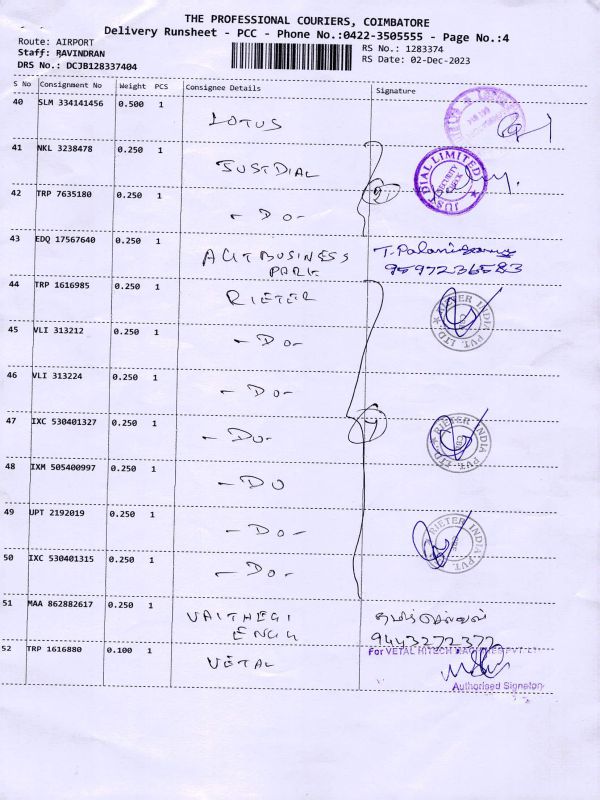 THE PROFESSIONAL COURIERS, COIMBATORE
Delivery Runsheet - PCC - Phone No.:0422-3505555 - Page No.:4
Route: AIRPORT
Staff: RAVINDRAN
DRS No.: DCJB128337404
RS No.: 1283374
RS Date: 02-Dec-2023
S No Consignment No Weight PCS Consignee Details Signature
40 SLM 334141456 0.500 1 LOTUS
41 NKL 3238478 0.250 1 JUSTDIAL
JUST DIAL LIMITED
42 TRP 7635180 0.250 1 - DO -
43 EDQ 17567640 0.250 1 ACIT BUSINESS
PARK
T. Palanisamy
9597236583
44 TRP 1616985 0.250 1 RIETER
RIETER INDIA PVT. LTD.
45 VLI 313212 0.250 1 - DO -
46 VLI 313224 0.250 1 - DO -
47 IXC 530401327 0.250 1 - DO -
RIETER INDIA PVT. LTD.
48 IXM 505400997 0.250 1 - DO
49 UPT 2192019 0.250 1 - DO -
RIETER INDIA PVT. LTD.
50 IXC 530401315 0.250 1 - DO -
51 MAA 862882617 0.250 1 VAITHEGI
ENGG
தமிழ்செல்வன்
9443272372
52 TRP 1616880 0.100 1 VETAL
For VETAL HITECH MACHINES PVT LT
Authorised Signatory